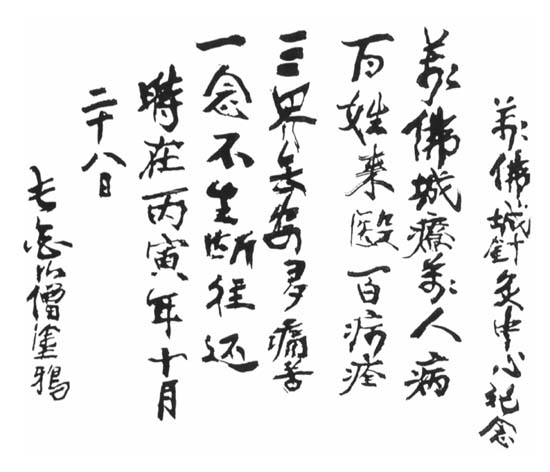 萬佛城針灸中心紀念
萬佛城療萬人病
百姓来醫百病痊
三界無安多痛苦
一念不生斷往还
時在丙寅年十月
二十八日
僧塗鴉